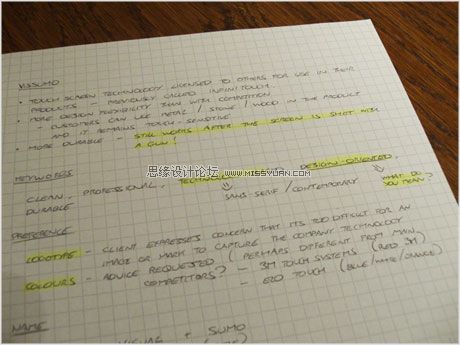 VISSUMO
• TOUCH SCREEN TECHNOLOGY LICENSED TO OTHERS FOR USE IN THEIR
PRODUCTS - PREVIOUSLY CALLED INFINITOUCH
• MORE DESIGN FLEXIBILITY THAN WITH COMPETITION
- CUSTOMERS CAN USE METAL / STONE / WOOD IN THE PRODUCT
AND IT REMAINS TOUCH-SENSITIVE
• MORE DURABLE - STILL WORKS AFTER THE SCREEN IS SHOT WITH
A GUN!
KEYWORDS
CLEAN, PROFESSIONAL, DESIGN-ORIENTED,
DURABLE
SANS-SERIF / CONTEMPORARY
WHAT DO
YOU MEAN?
思缘设计论坛 WWW.MISSYUAN.COM
PREFERENCE
LOGOTYPE - CLIENT EXPRESSES CONCERN THAT ITS TOO DIFFICULT FOR AN
IMAGE OR MARK TO CAPTURE THE COMPANY TECHNOLOGY
COLOURS - ADVICE REQUESTED (PERHAPS DIFFERENT FROM MAIN
COMPETITORS? - 3M TOUCH SYSTEMS (RED 3M)
- ELO TOUCH (BLUE/WHITE/ORANGE)
NAME
VISUAL + SUMO